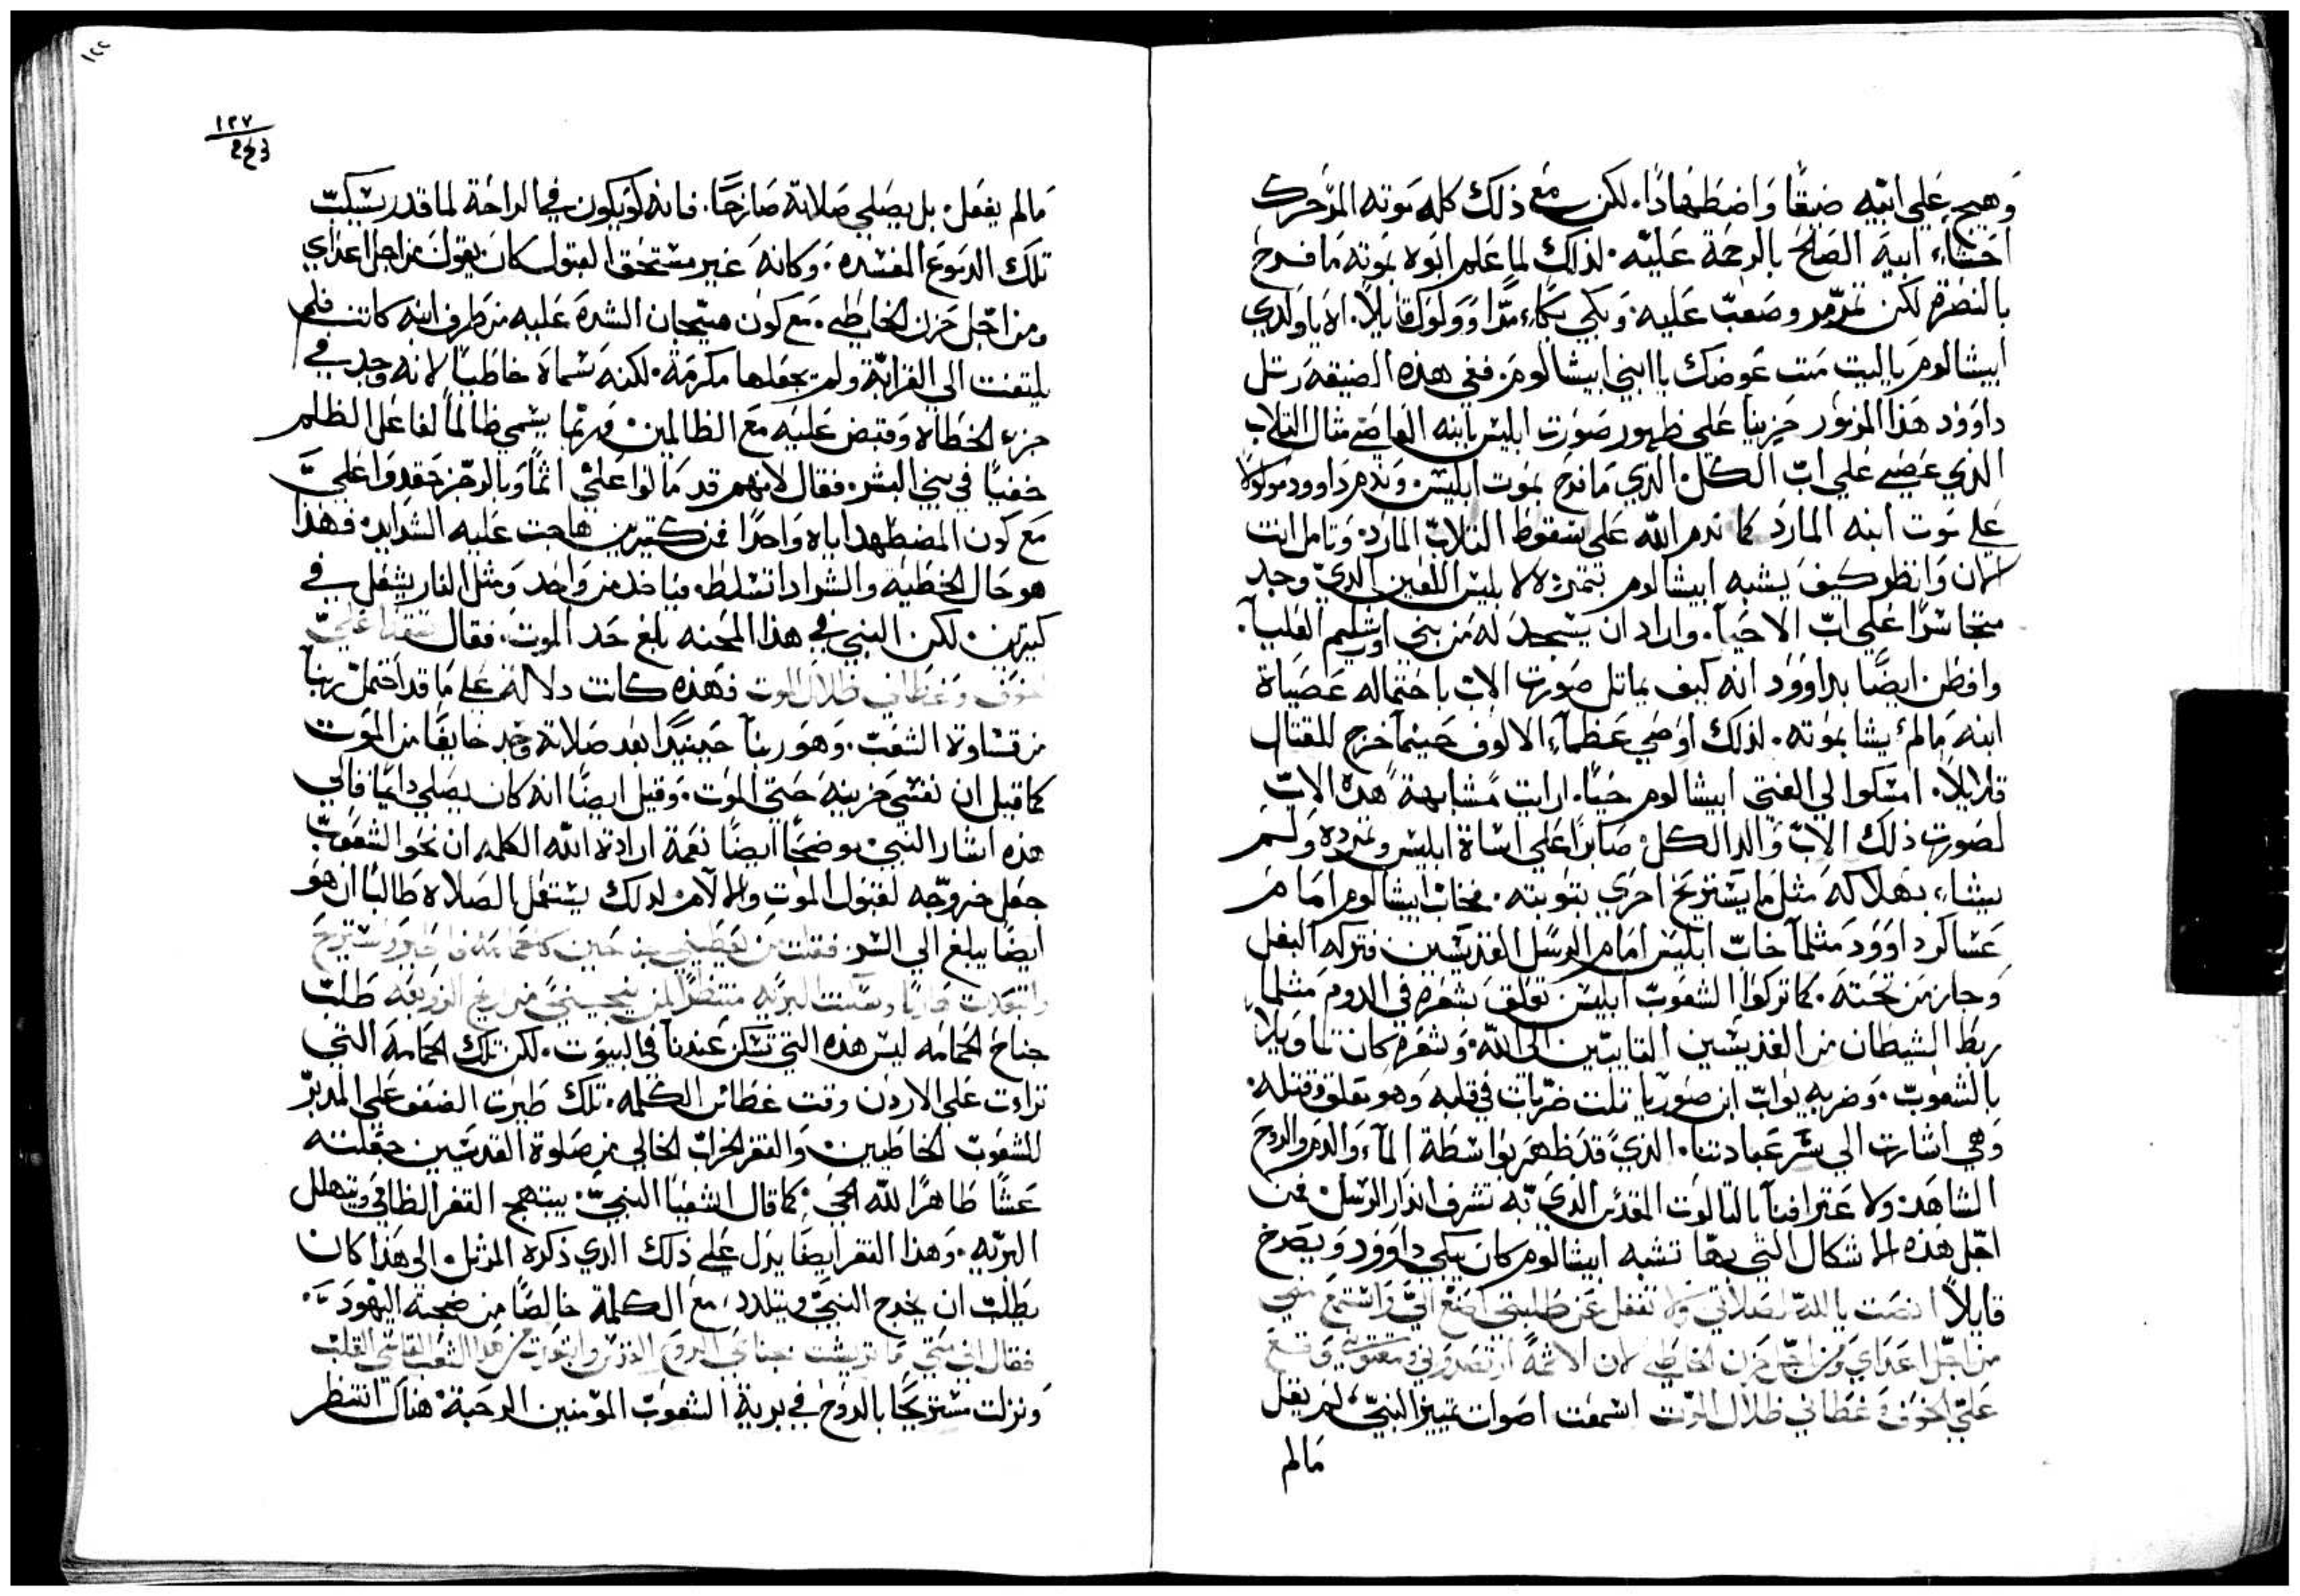 وَهيج علي ابيه ضيقًا وَاضطهادًا. لكن مع ذلك كله موته المؤحرك
احَشاء ابيه الصَالح بالرحمة عَليه. لذلك لما عَلم ابوه بموته مَا فرح
بالنصرة لكن تمرمر وصَعبَ عَليه. وَبكي بكاء مرًا وَوَلوَل قايلاً. اه يا ولدي
ابيشالوم ياليت مت عَوضك يا ابني ابيشالوم. ففي هذه الضيقه رتل
داوود هَذا المزمور حَزينا عَلي ظهور صَورت ابليس بابنه العاصي مثال التلاب
الذي عَصي عَلي ابّ الكل. الذي مَا فرح بموت ابليس. وَندم داوود مولولا
عَلي موت ابنه المارد كما ندم الله عَلي سقوط التلاب المارد. وَتامل انت
الان وَانظر كيف يشبه ابيشالوم بتمرده لابليس اللعين الذي وجد
متجاسرًا عَلي ابّ الاحيآ. واراد ان يسجد له من بني اوشليم العَليا.
وافطن ايضًا بداوود انه كيف يماتل صَورت الاب باحتماله عَصاة
ابنه مَالم يشا بموته. لذلك اوصَي عَظمآء الالوف حَينمآ خرج للقتال
قايلاً. امسَكوا لي الفتي ابيشالوم حَيًا. ارايت مشابهة هذه الابّ
لصورت ذلك الابّ وَالد الكل. صَابرًا عَلي اساة ابليس وتمرده وَلم
يشاء بهلاكه مثل مَا يَستريح احري بتوبته. فخاب ابيشالوم امَام
عَساكر داووَد مثلمآ خابّ ابليس امَام الرسل القديسين فتركه البغل
وَجاز من تحَته. كما تركوا الشعوبّ ابليس تعَلق بشعره في الدوم مثلما
ربط الشيطان من القديسين التايبين الي الله. وَشعره كان تاويلاً
بالشعوبّ. وَضربه يوابّ ابن صَوريا تلت ضربات في قلبه وَهو معَلق وقتله.
وَهي اشارت الي سر عَبادتنا. الذي قد ظهر بواسطة المآء وَالدم والروح
الشاهد. ولاعترافنآ بالتالوت المقدس الذي به تشرف انذار الرسل. فمن
اجَل هذه الاشكال التي بها تشبه ابيشالوم كان يبكي داوود وَيصَرخ
قايلاً انصَت يا الله لصَلاتي وَلا تغفل عَن طلبتي اصنع اليّ وَاستمع مني
من اجَل اعَداي وَمن اجَل حَزن الخاطي لان الاثمة وقع
عَليّ الخوف وَغطاني ظلال الموت اسَمعت اصَوات تمييز النبيّ لم يقل
مَالم
١٢٧
مَالم يفعَل. بل يصَلي صَلاته صَارخًا. فانه كونه يكون في الراحَة لما قدر يسكبّ
تلك الدموع المفسده. وَكانه غير مستحَق القبول كان يقول من اجل اعَداي
ومن اجَل حَزن الخاطي. مع كون هيَجان الشدة عَليه من طرف ابنه كانت فلم
يلتفت الي القرابة ولم يجعَلها مكرمَة. لكنه سَماه خاطيًا لانه وجد في
حزب الخطاه وَقبض عَليه مع الظالمين. وربما يسمي ظالمًا لفاعَل الظلم
خفيًا في بني البشر. فقال لانهم قد مَالوا عَليّ اثمًا وَبالرجز حَقدوا عَليَّ
مع كون المضطهد اياه وَاحدًا فمن كتيرين هاجت عَليه الشدايد. فهذا
هو حَال الخطية والشر اذا تسَلط. فياخد من وَاحد وَمثل النار يشعَل في
كتيرين. لكن النبي في هذا المحنه بلغ حَد الموت. فقال وَقعَ عَليّ
الخوف وَغطاني ظلال الموت فهذه كانت دلالة عَلي مَا قد احَتمل ربنآ
من قساوة الشعَبّ. وَهو ربنآ حَينيذٍ ابعَد صَلاته وَجد خايفًا من الموَت
كما قيل ان نفسَي حَزينه حَتي الموت. وَقيل ايضًا انه كان يصَلي دايمًا. فالي
هذه اشار النبي موضحًا ايضًا نعَمة ارادة الله الكلمه ان نحَو الشعوبّ
جعَل خروجَه لقبول الموت والالآم. لذلك يستعَمل الصَلاه طالبًا ان هو
ايضًا يبلغ الي السر. فقلت من يعَطيني جناحَين كالحَمامه فاطير وَاستريح
وابتعَدت هاربًا وسكنت البريه منتظرًا لمن ينجيني من ريح الزوبعَه طلبّ
جناحَ الحَمامه ليس هذه التي تسَكن عَندنآ في البيوت. لكن تلك الحَمامَة التي
تراءت عَلي الاردن وقت عَطاس الكلمه. تلك طيرت الضعَف عَلي المدبر
للشعوبّ الخاطيين. وَالقفر الخراب الخالي من صَلوة القديسَين جعَلته
عَشًا طاهرًا لله الحَي. كما قال اشعيا النبيّ. يبتهج القفر الظافي وَيتهلل
البريه. وَهذا القفر ايضًا يدل عَلي ذلك الذي ذكره المرتل. الي هَذا كان
يطلبّ ان يخرج النبيّ ويتلدد مع الكلمة خالصًا من ضجة اليهودَ.
فقال اني متي مَا تريشت بجناحَي الروح القدس وابتعَدت من هَذا الشعَب القاسَي القلبّ
وَنزلت مستريحًا بالروح في برية الشعوبّ المؤمنين الرحَبة. هناك انتظر